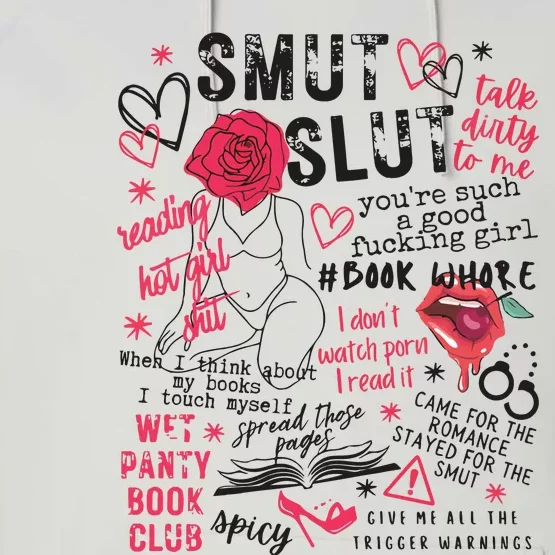 SMUT
SLUT
talk
dirty
to me
you're such
a good
fucking girl
reading
hot girl
shit
#BOOK WHORE
I don't
watch porn
I read it
When I think about
my books
I touch myself
CAME FOR THE
ROMANCE
STAYED FOR THE
SMUT
WET
PANTY
BOOK
CLUB
spread those
pages
!
spicy
GIVE ME ALL THE
TRIGGER WARNINGS